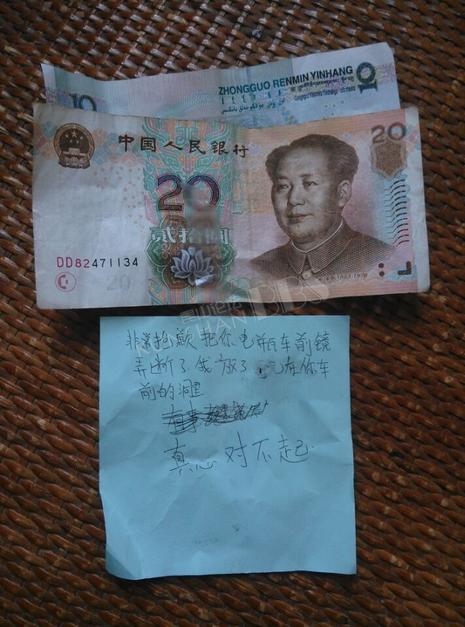 10
ZHONGGUO RENMIN YINHANG
10
中国人民银行
20
20
贰拾圆
DD82471134
20
非常抱歉把你电瓶车前镜
弄断了我放了元在你车
前的洞里
真心对不起